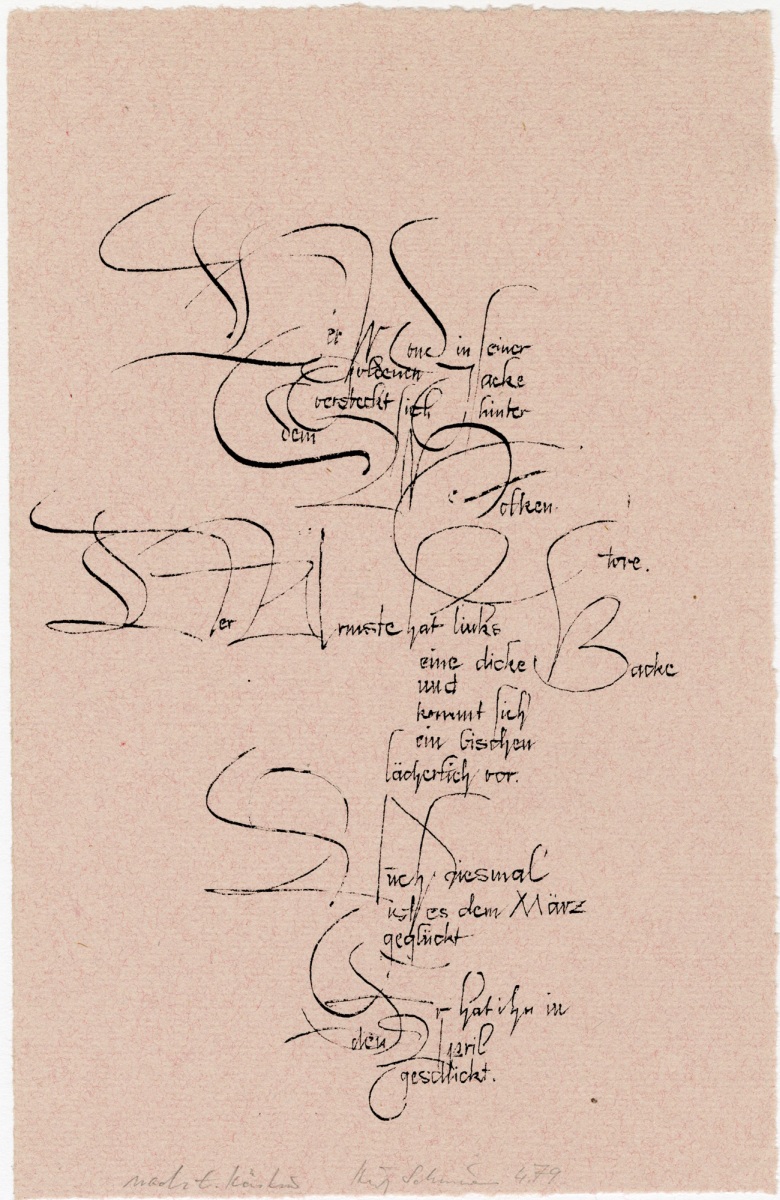 Der Mond in seiner
goldenen Jacke
versteckt sich hinter
dem
Wolken
store.
Der Ärmste hat links
eine dicke Backe
und
kommt sich
ein bischen
lächerlich vor.
Auch diesmal
ist es dem März
geglückt
Er hat ihn in
den April
geschickt.
nach E. Kästner
4.79